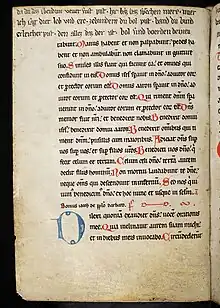 tabunt. Manus habent et non palpabunt. pedes ha
bent et non ambulabunt. non clamabunt in gutture
suo. Similes illis fiant qui faciunt ea. et omnes qui
confidunt in eis. Domus isrl sperauit in dno. adiutor eorum
et protector eorum est. Domus aaron sperauit in dno. ad
iutor eorum et protector eorum est. Qui timent dnm spera
uerunt in dno. adiutor eorum et protector eorum est. Dns
memor fuit nri. et benedixit nobis. Benedixit domui
isrl. benedixit domui aaron. Benedixit omnibus qui ti
ment dnm. pusillis cum maioribus. Adiciat dns
sup uos. sup uos et sup filios uros. Benedicti uos a dno. qui
fecit celum et terram. Celum celi dno. terram autem
dedit filiis hominum. Non mortui laudabunt te dne.
neque oms qui descendunt in infernum. Sed nos qui
uiuimus. benedicimus dno. ex hoc nunc et usque in sclm.
Domus iacob de pplo barbaro
Dilexi quoniam exaudiet dns. uocem orationis
mee. Quia inclinauit aurem suam michi.
et in diebus meis inuocabo. Circumdederunt